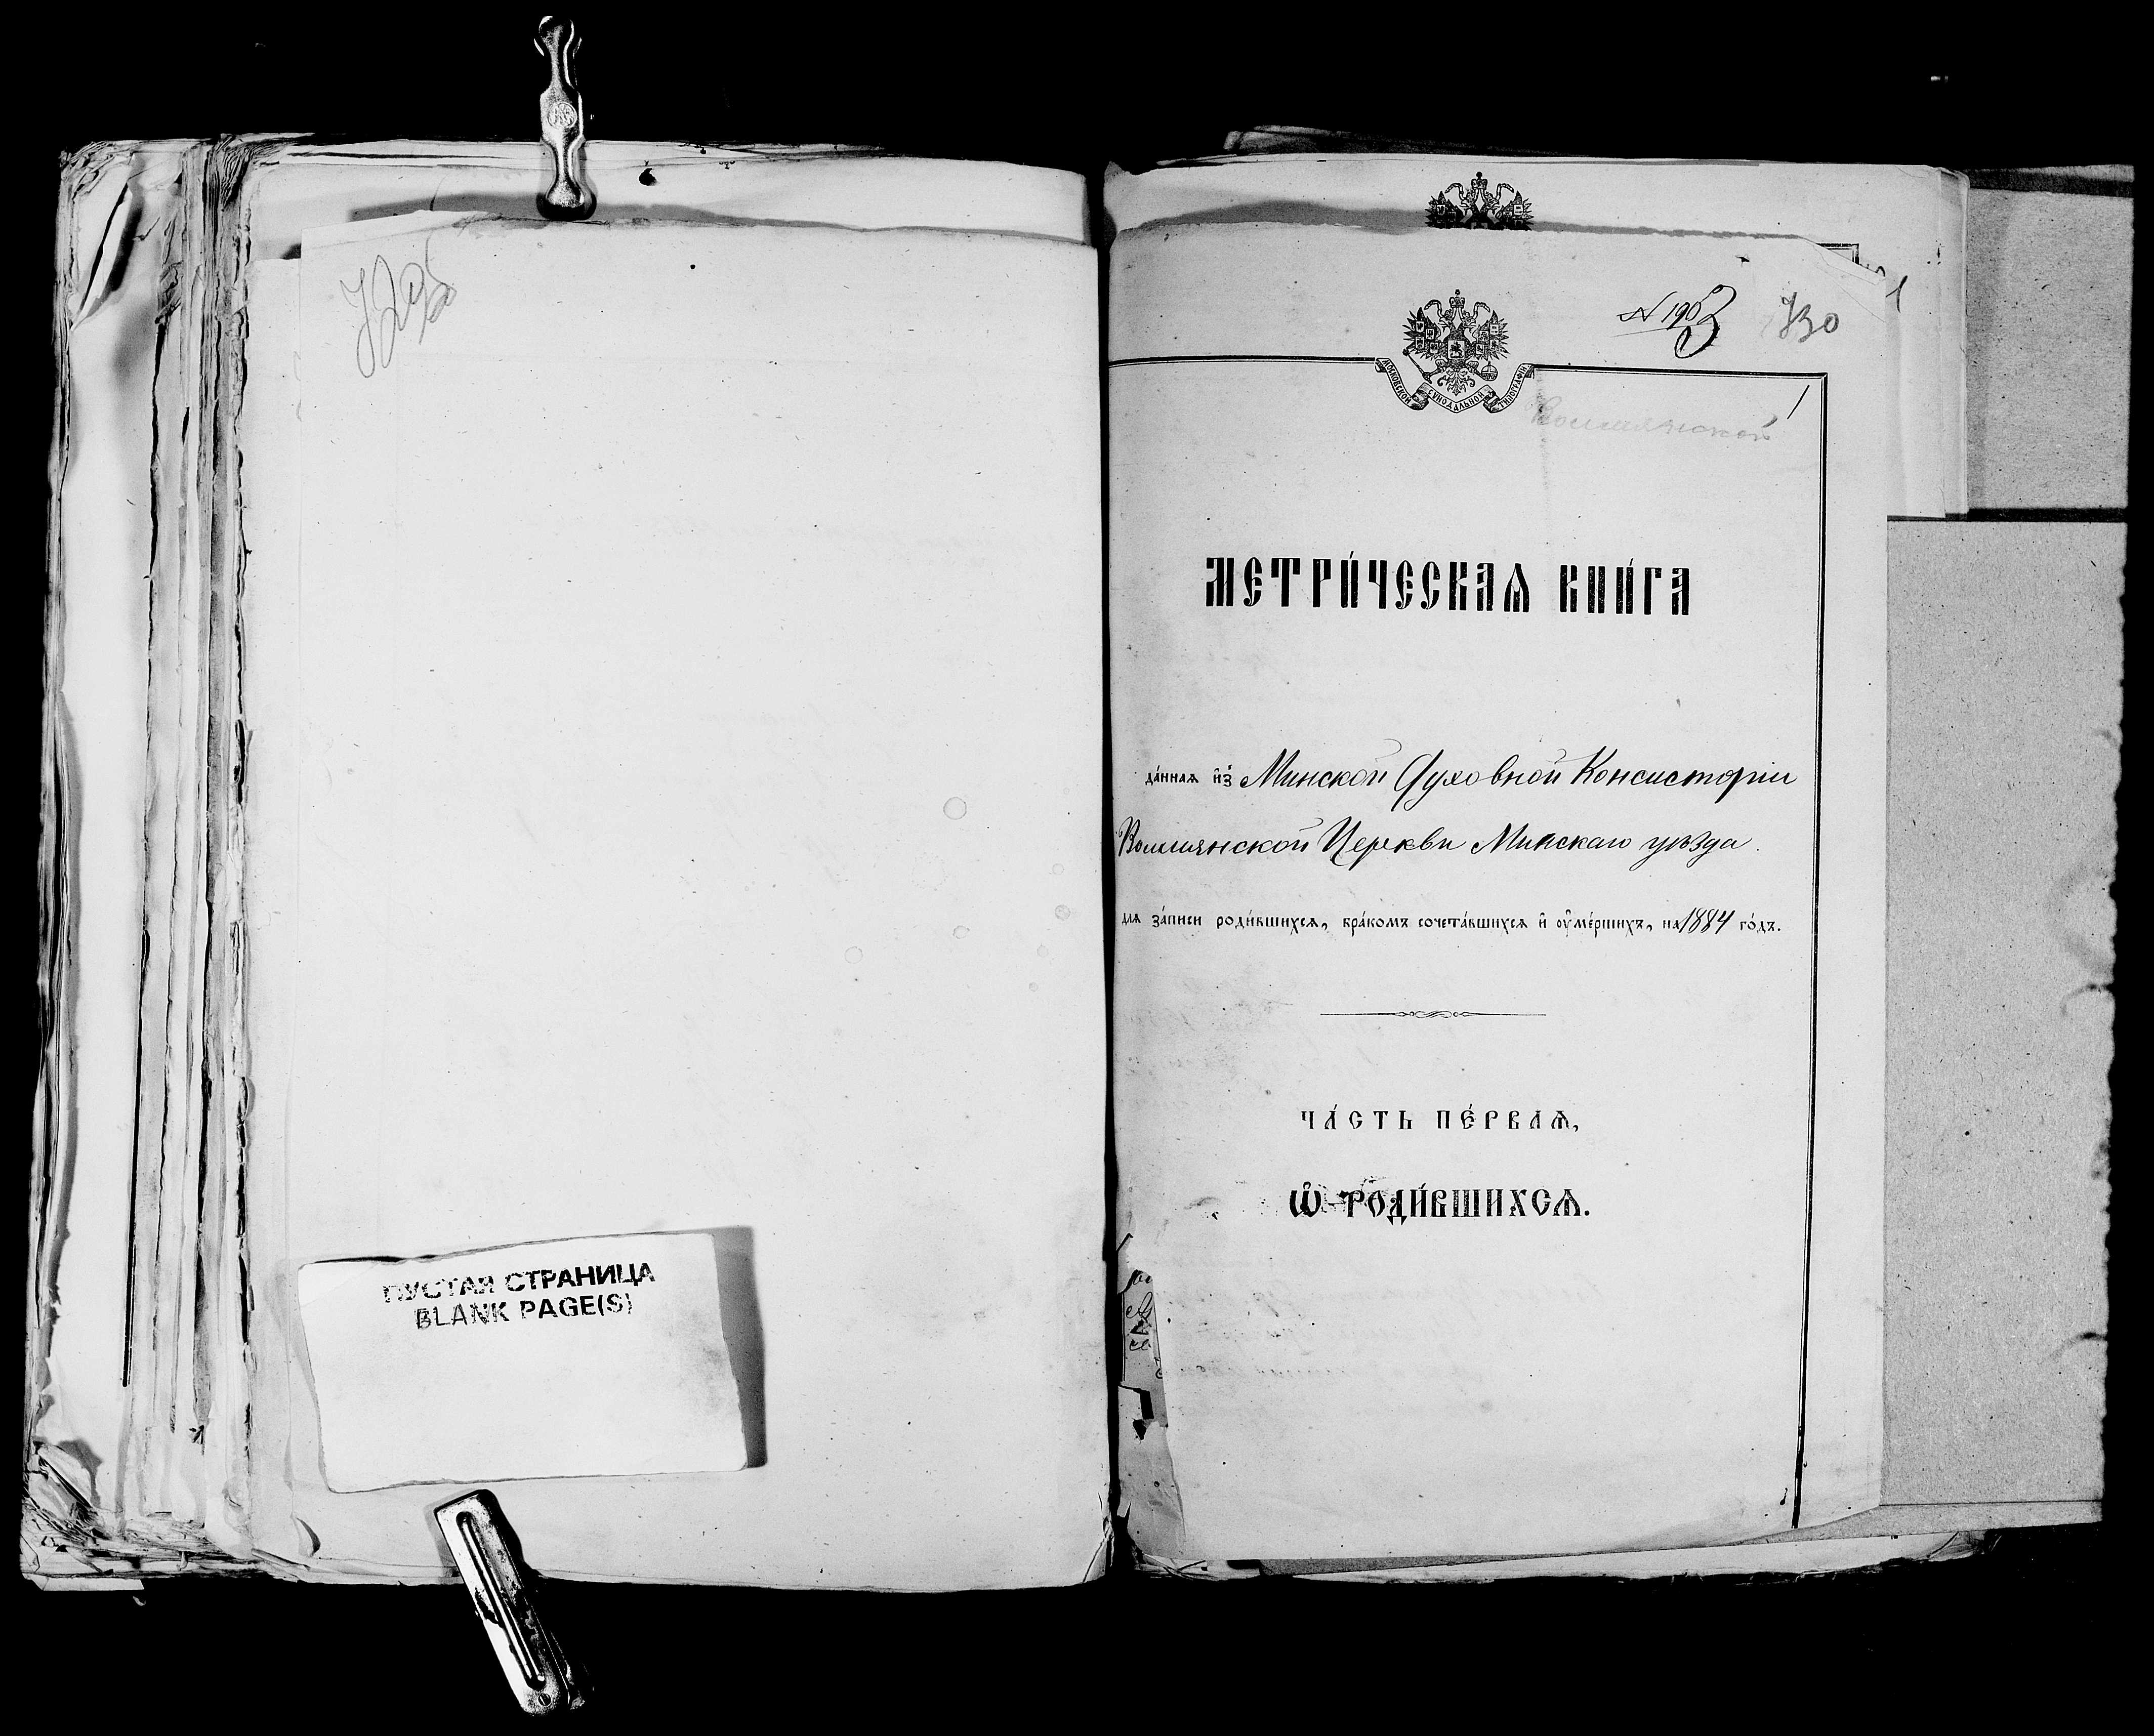 ПУСТАЯ СТРАНИЦА
BLANK PAGE(S)
730
МОСКОВСКОЙ СѴНОДАЛЬНОЙ ТИПОГРАФІИ
МЕТРИ́ЧЕСКАѦ КНИ́ГА
да́ннаѧ и҆з̾ Минской Духовной Консисторіи
Волмянской Церкви Минскаго уѣзда.
длѧ за́писи роди́вшихсѧ, бра́комъ сочета́вшихсѧ и҆ ᲂу҆ме́ршихъ, на 1884 го́дъ.
ЧА́СТЬ ПЕ́РВАѦ,
Ѡ҆ РОДИ́ВШИХСѦ.